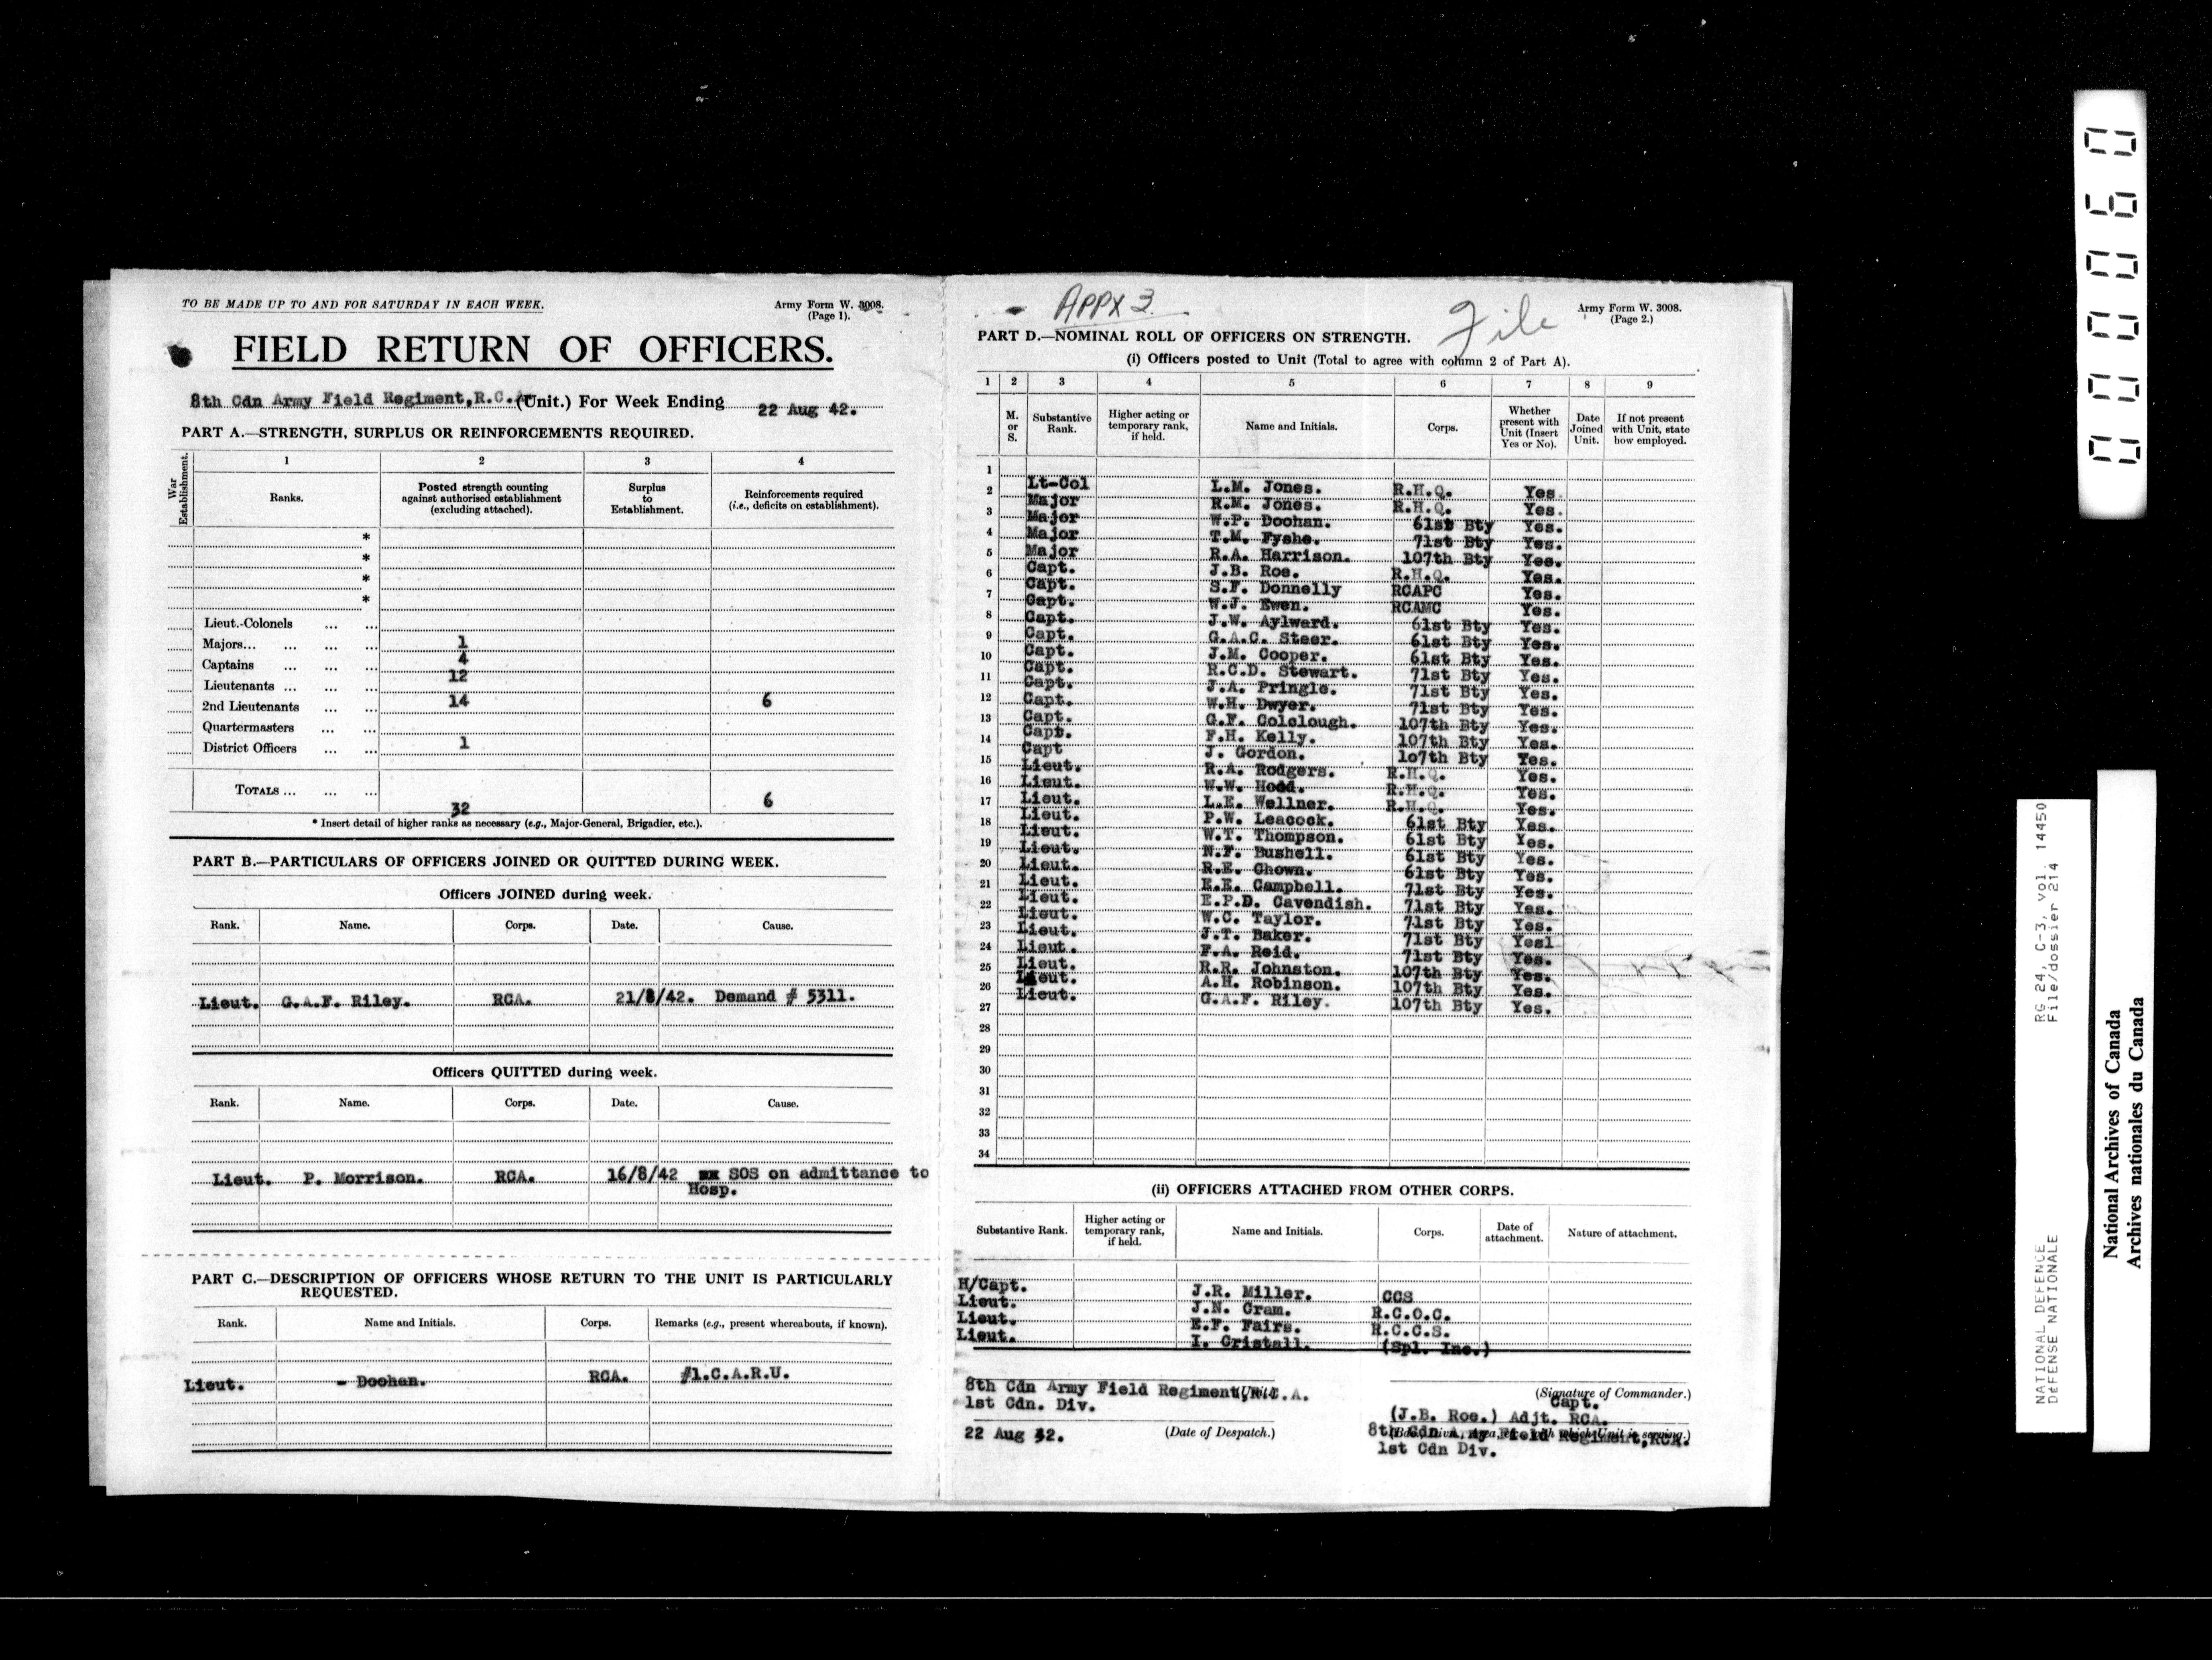 TO BE MADE UP TO AND FOR SATURDAY IN EACH WEEK.
Army Form W. 3008.
(Page 1).
FIELD RETURN OF OFFICERS.
8th Cdn Army Field Regiment, R.C.A. (Unit.) For Week Ending 22 Aug 42.
PART A.—STRENGTH, SURPLUS OR REINFORCEMENTS REQUIRED.
War Establishment.
1 2 3 4
Ranks. Posted strength counting against authorised establishment (excluding attached). Surplus to Establishment. Reinforcements required (i.e., deficits on establishment).
*
*
*
*
Lieut.-Colonels ... ...
Majors... ... ... ... 1
Captains ... ... ... 4
Lieutenants ... ... ... 12
2nd Lieutenants ... ... 14 6
Quartermasters ... ...
District Officers ... ... 1
TOTALS ... ... ... 32 6
* Insert detail of higher ranks as necessary (e.g., Major-General, Brigadier, etc.).
PART B.—PARTICULARS OF OFFICERS JOINED OR QUITTED DURING WEEK.
Officers JOINED during week.
Rank. Name. Corps. Date. Cause.
Lieut. G.A.F. Riley. RCA. 21/8/42. Demand # 5311.
Officers QUITTED during week.
Rank. Name. Corps. Date. Cause.
Lieut. P. Morrison. RCA. 16/8/42 SOS on admittance to
Hosp.
PART C.—DESCRIPTION OF OFFICERS WHOSE RETURN TO THE UNIT IS PARTICULARLY
REQUESTED.
Rank. Name and Initials. Corps. Remarks (e.g., present whereabouts, if known).
Lieut. - Doohan. RCA. #1.C.A.R.U.
APPX 3
File
Army Form W. 3008.
(Page 2.)
PART D.—NOMINAL ROLL OF OFFICERS ON STRENGTH.
(i) Officers posted to Unit (Total to agree with column 2 of Part A).
1 2 3 4 5 6 7 8 9
M. or S. Substantive Rank. Higher acting or temporary rank, if held. Name and Initials. Corps. Whether present with Unit (Insert Yes or No). Date Joined Unit. If not present with Unit, state how employed.
1
2 Lt-Col L.M. Jones. R.H.Q. Yes.
3 Major R.M. Jones. R.H.Q. Yes.
Major W.P. Doohan. 61st Bty Yes.
4 Major T.M. Fyshe. 71st Bty Yes.
5 Major R.A. Harrison. 107th Bty Yes.
6 Capt. J.B. Roe. R.H.Q. Yes.
7 Capt. S.F. Donnelly RCAPC Yes.
Capt. W.J. Ewen. RCAMC Yes.
8 Capt. J.W. Aylward. 61st Bty Yes.
9 Capt. G.A.C. Steer. 61st Bty Yes.
10 Capt. J.M. Cooper. 61st Bty Yes.
11 Capt. R.C.D. Stewart. 71st Bty Yes.
Capt. J.A. Pringle. 71st Bty Yes.
12 Capt. W.H. Dwyer. 71st Bty Yes.
13 Capt. G.F. Colclough. 107th Bty Yes.
14 Capt. F.H. Kelly. 107th Bty Yes.
Capt J. Gordon. 107th Bty Yes.
15 Lieut. R.A. Rodgers. R.H.Q. Yes.
16 Lieut. W.W. Hodd. R.H.Q. Yes.
17 Lieut. L.E. Wellner. R.H.Q. Yes.
18 Lieut. P.W. Leacock. 61st Bty Yes.
Lieut. W.T. Thompson. 61st Bty Yes.
19 Lieut. N.F. Bushell. 61st Bty Yes.
20 Lieut. R.E. Chown. 61st Bty Yes.
21 Lieut. E.E. Campbell. 71st Bty Yes.
22 Lieut. E.P.D. Cavendish. 71st Bty Yes.
Lieut. W.C. Taylor. 71st Bty Yes.
23 Lieut. J.T. Baker. 71st Bty Yesl
24 Lieut. F.A. Reid. 71st Bty Yes.
25 Lieut. R.R. Johnston. 107th Bty Yes.
26 Lieut. A.H. Robinson. 107th Bty Yes.
27 Lieut. G.A.F. Riley. 107th Bty Yes.
28
29
30
31
32
33
34
(ii) OFFICERS ATTACHED FROM OTHER CORPS.
Substantive Rank. Higher acting or temporary rank, if held. Name and Initials. Corps. Date of attachment. Nature of attachment.
H/Capt. J.R. Miller. CCS
Lieut. J.N. Cram. R.C.O.C.
Lieut. E.F. Fairs. R.C.C.S.
Lieut. I. Cristall. (Spl. Inc.)
8th Cdn Army Field Regiment, R.C.A. (Unit.)
1st Cdn. Div.
22 Aug 42. (Date of Despatch.)
(Signature of Commander.)
Capt.
(J.B. Roe.) Adjt. RCA.
8th Cdn Army Field Regiment, RCA.
(Bde., Divn., Area, etc., with which Unit is serving.)
1st Cdn Div.
000060
RG 24, C-3, vol. 14450
File/dossier 214
NATIONAL DEFENCE
DÉFENSE NATIONALE
National Archives of Canada
Archives nationales du Canada